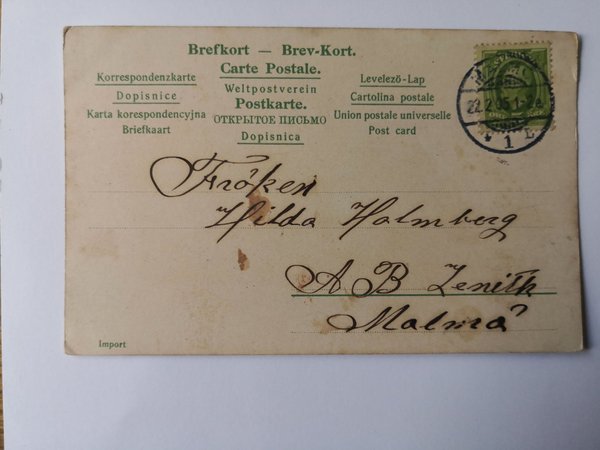 Brefkort — Brev-Kort.
Carte Postale.
Korrespondenzkarte
Weltpostverein
Levelező-Lap
Dopisnice
Postkarte.
Cartolina postale
Karta korespondencyjna
ОТКРЫТОЕ ПИСЬМО
Union postale universelle
Briefkaart
Dopisnica
Post card
22.2.05.1-2
1
Fröken
Hilda Holmberg
A B Zenith
Malmö
Import